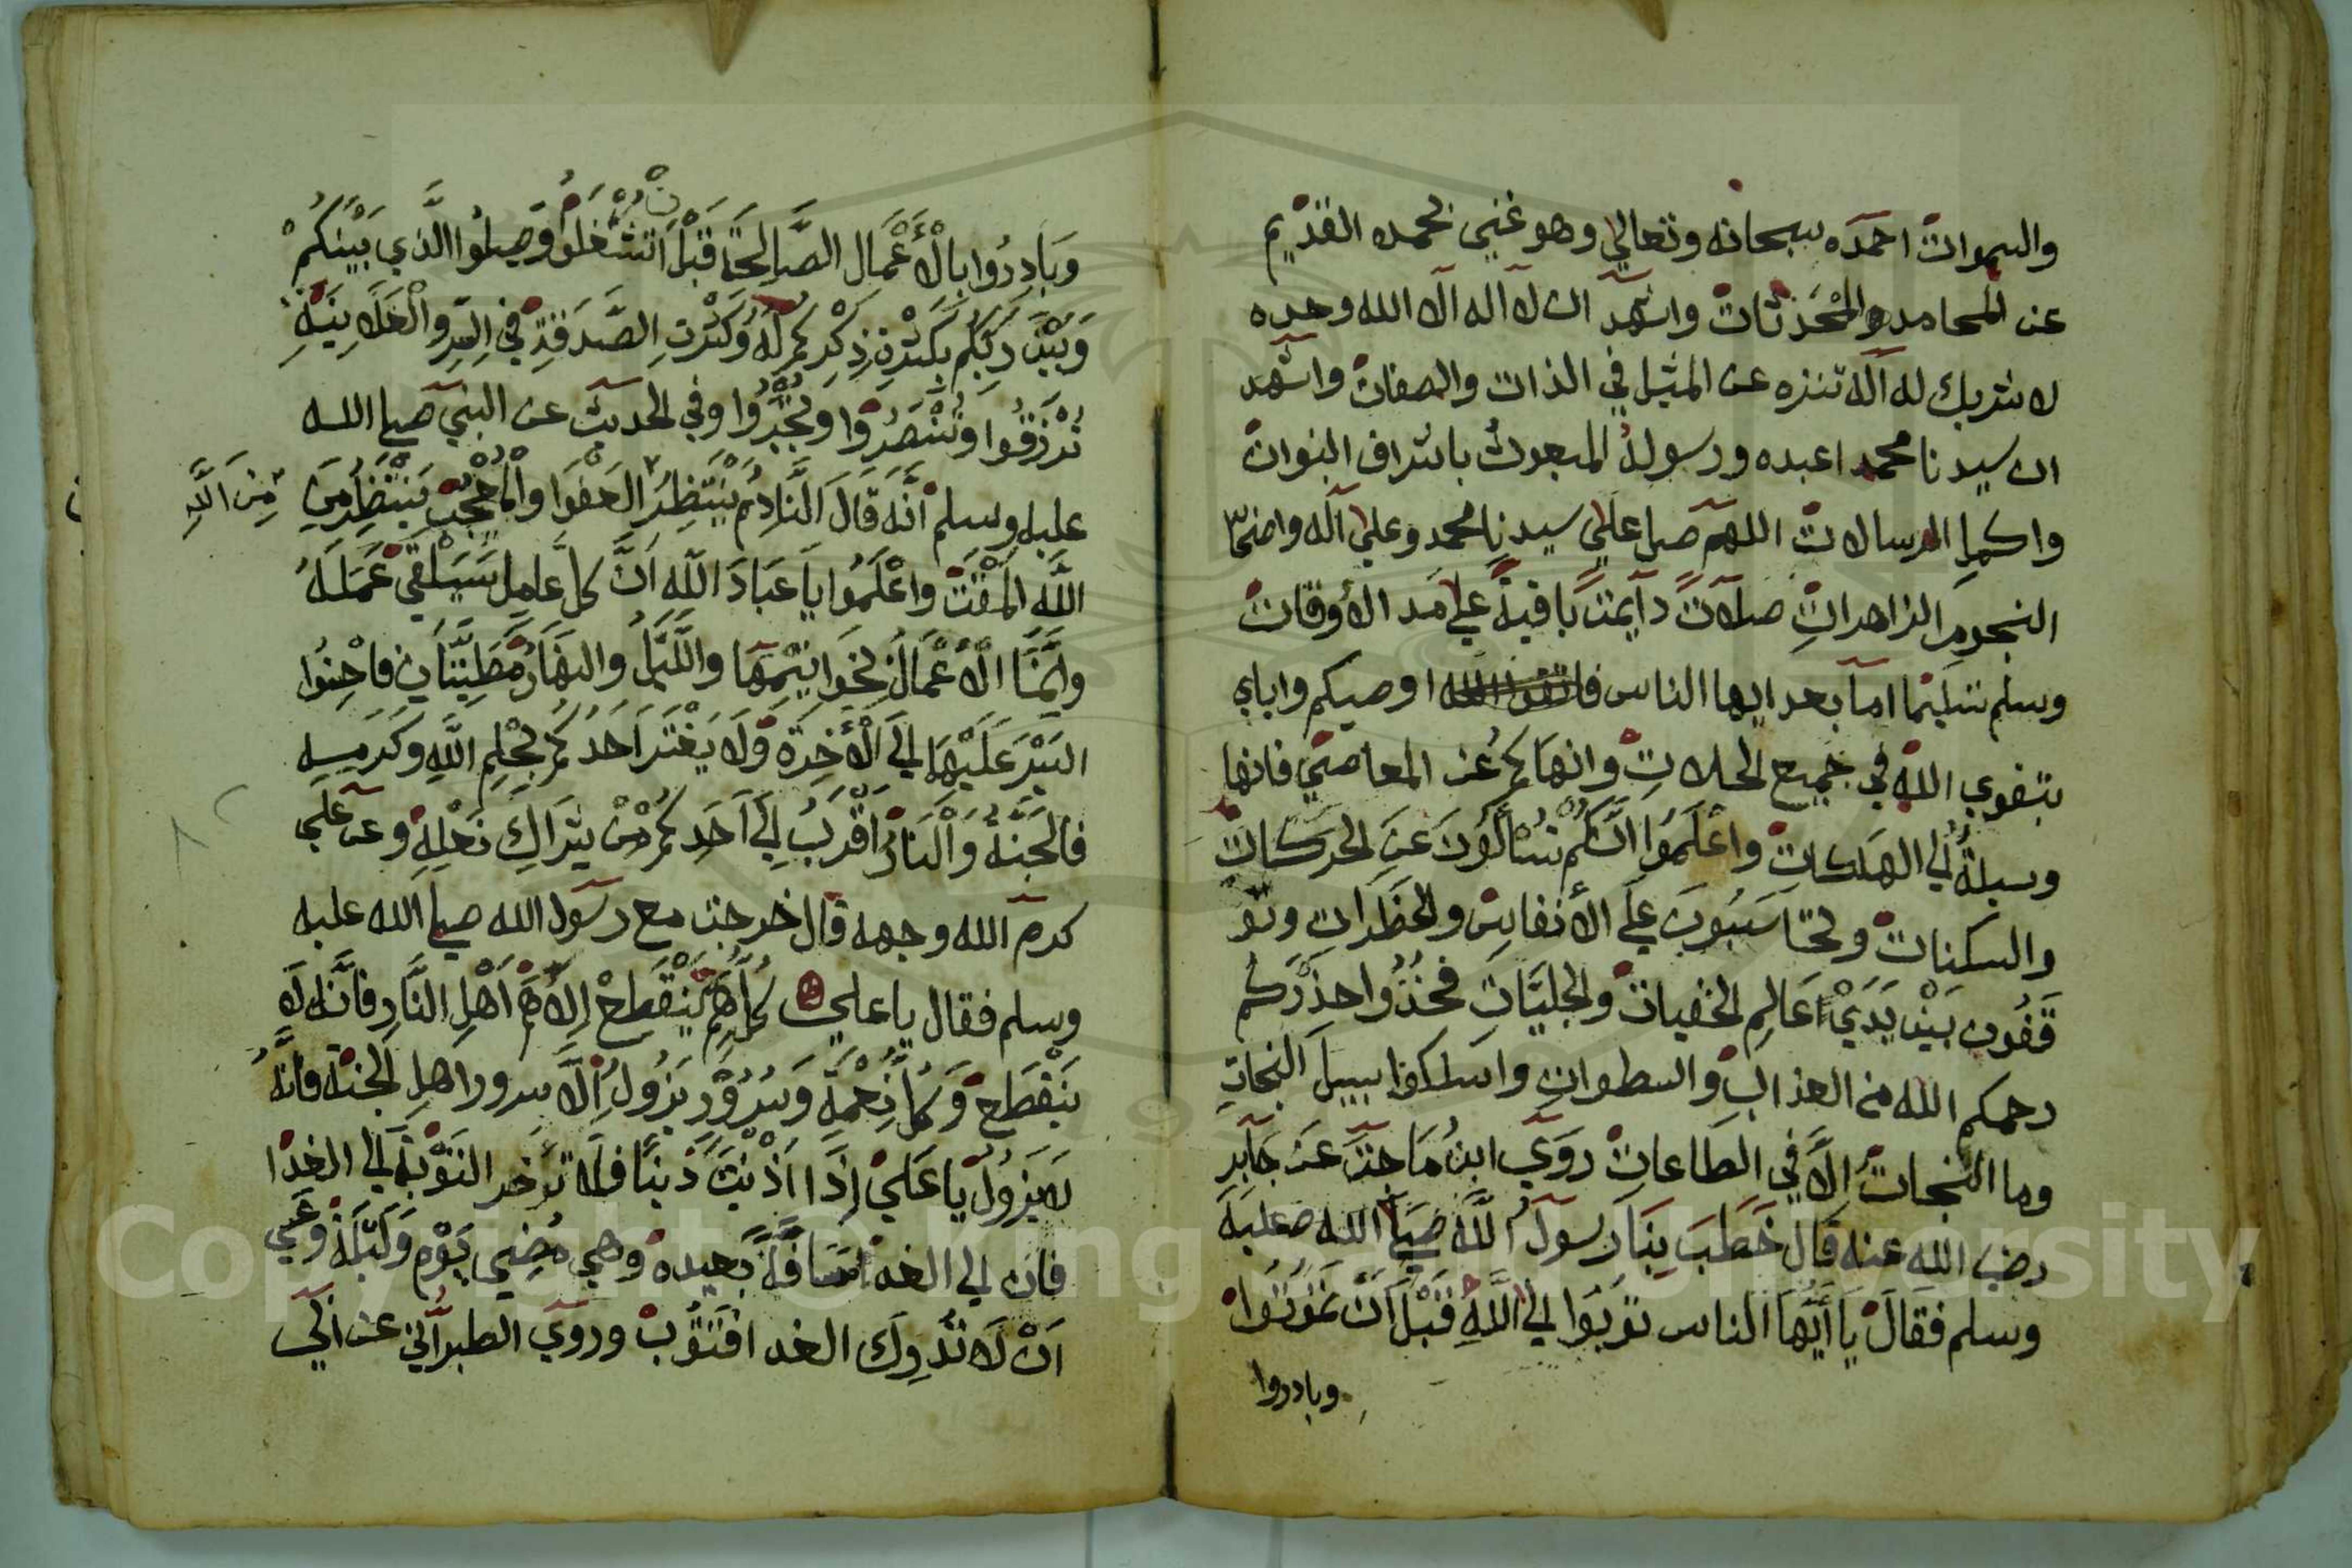 والسموات احمده سبحانه وتعالي وهو غني بحمده القديم
عن المحامد والمحدثات واشهد ان لا اله الا الله وحده
لا شريك له اله تنزه عن المثيل في الذات والصفات واشهد
ان سيدنا محمد اعبده ورسوله المبعوث باشراف النبوات
واكمل الرسالات اللهم صل علي سيدنا محمد وعلي اله واصحا
النجوم الزاهدات صلات دايمت باقية علي مد الأوقات
وسلم تسليما اما بعد ايها الناس اوصيكم واياي
بتقوي الله في جميع الحلات وانهاكم عن المعاصي فانها
وسيلة لي الهلكات واعلموا انكم تسألون عن الحركات
والسكنات وتحاسبون علي الأنفاس والخطرات وتو
قفون بين يدي عالم الخفيات والجليات فخذوا حذركم
رحمكم الله من العذاب والسطوات واسلكوا سبيل النجات
وما النجات الا في الطاعات روي ابن ماجت عن جابر
رضي الله عنه قال خطب بنا رسول الله صلي الله عليه
وسلم فقال يا أيها الناس توبوا لي الله قبل ان تموتوا
وبادروا
وبادروا بالأعمال الصالحة قبل ان تشغلوا وصلوا الذي بينكم
وبين ربكم بكثرة ذكركم له وكثرت الصدقة في السر والعلانية
ترزقوا وتنصروا وتجبروا وفي الحديث عن النبي صلي الله
عليه وسلم انه قال النادم ينتظر العفوا والمعجب ينتظر من
من الله
الله المقت واعلموا يا عباد الله ان كل عامل سيلقي عمله
وانما الأعمال بخواتمها والليل والنهار مطيتان فاحنوا
السير عليهما لي الأخرة ولا يغتر احدكم بحلم الله وكرمه
فالجنة والنار اقرب لي احدكم من شراك نعله وعن علي
كرم الله وجهه قال خرجت مع رسول الله صلي الله عليه
وسلم فقال يا علي كل هم ينقطع الا هم اهل النار فانه لا
ينقطع وكل نعمة وسرور يزول الا سرور اهل الجنة فانه
لا يزول يا علي اذا اذنبت ذنبا فلا تؤخر التوبة لي الغدا
فان لي الغد مسافة بعيده وهي مضي يوم وليلة وعسي
ان لا تدرك الغد افتتوب وروي الطبراني عن ابي